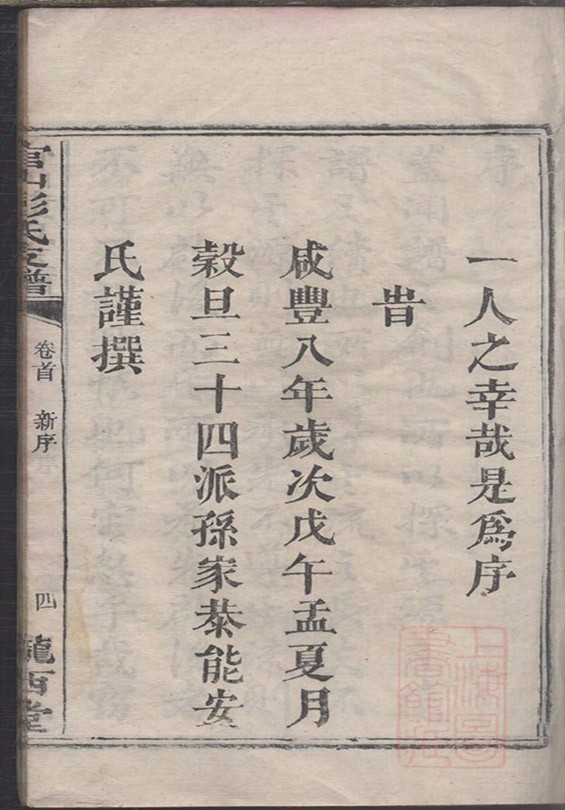 一人之幸哉是爲序
旹
咸豐八年歲次戊午孟夏月
穀旦三十四派孫家泰能安
氏謹撰
官山彭氏支譜
卷首　新序
四
隴西堂
上海圖書館藏